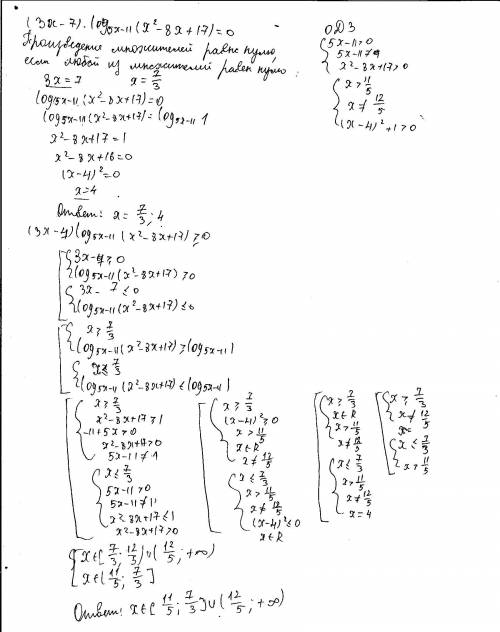 (3x-7)·log₅ₓ₋₁₁(x²-8x+17)=0
Произведение множителей равно нулю,
если любой из множителей равен нулю:
3x=7 x=7/3
log₅ₓ₋₁₁(x²-8x+17)=0
log₅ₓ₋₁₁(x²-8x+17)=log₅ₓ₋₁₁1
x²-8x+17=1
x²-8x+16=0
(x-4)²=0
x=4
Ответ: x=7/3; 4
ОДЗ
5x-11>0
5x-11≠1
x²-8x+17>0
x>11/5
x≠12/5
(x-4)²+1>0
(3x-7)log₅ₓ₋₁₁(x²-8x+17)≥0
3x-7≥0
log₅ₓ₋₁₁(x²-8x+17)≥0
3x-7≤0
log₅ₓ₋₁₁(x²-8x+17)≤0
x≥7/3
log₅ₓ₋₁₁(x²-8x+17)≥log₅ₓ₋₁₁1
x≤7/3
log₅ₓ₋₁₁(x²-8x+17)≤log₅ₓ₋₁₁1
x≥7/3
x²-8x+17≥1
-11+5x>0
x²-8x+17>0
5x-11≠1
x≤7/3
5x-11>0
5x-11≠1
x²-8x+17≤1
x²-8x+17>0
x≥7/3
(x-4)²≥0
x>11/5
x∈R
x≠12/5
x≤7/3
x>11/5
x≠12/5
(x-4)²≤0
x∈R
x≥7/3
x∈R
x>11/5
x≠12/5
x≤7/3
x>11/5
x≠12/5
x=4
x≥7/3
x≠12/5
x≤7/3
x>11/5
x∈[7/3;12/5)∪(12/5;+∞)
x∈(11/5;7/3]
Ответ: x∈[11/5;7/3]∪(12/5;+∞)